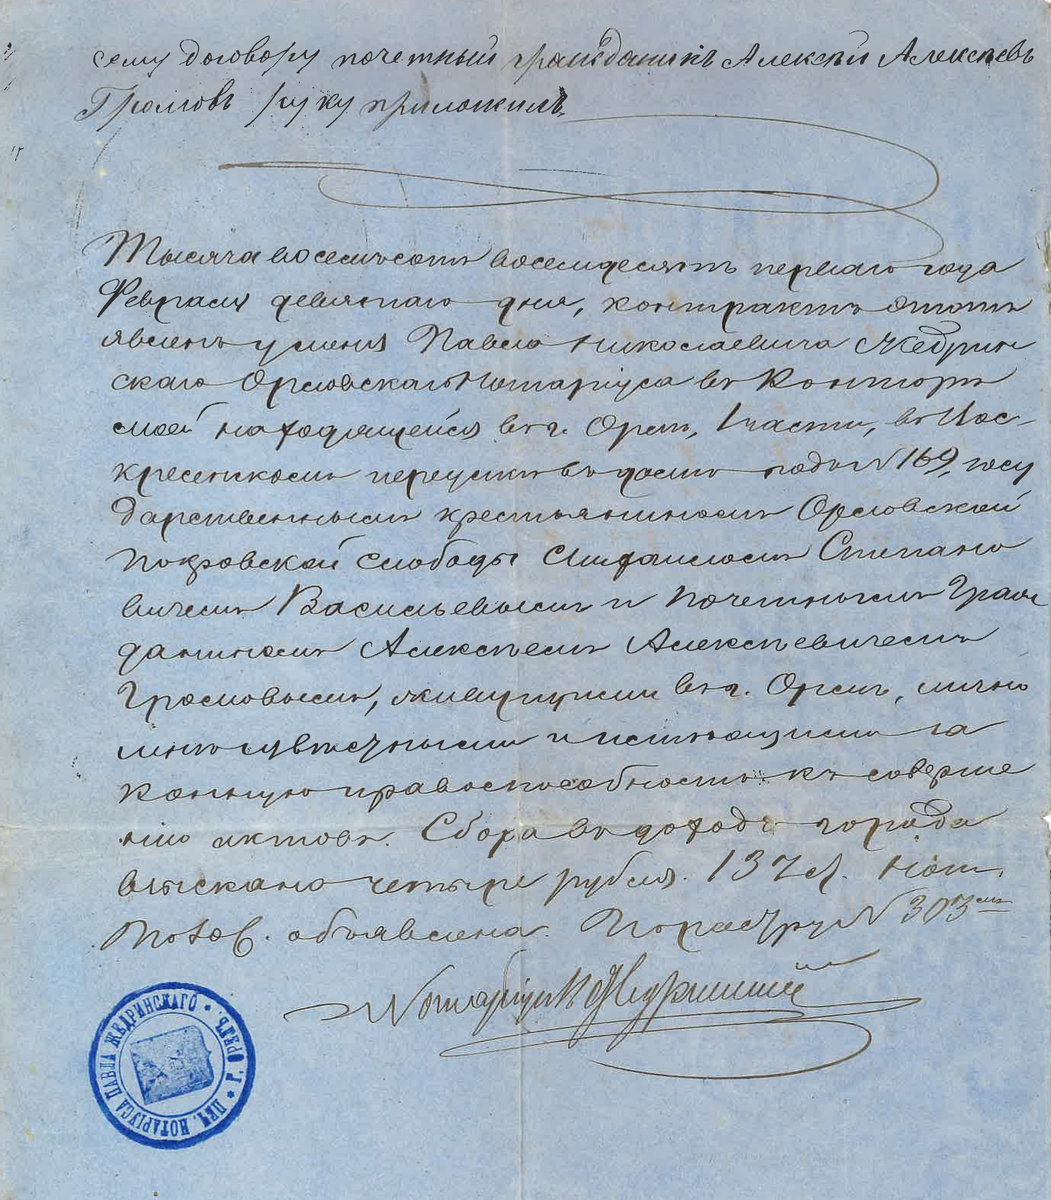 сему договору почетный гражданинъ Алексѣй Алексѣевъ
Громовъ руку приложилъ.
Тысяча восемьсотъ восемьдесятъ перваго года
Февраля девятаго дня, контрактъ этотъ
явленъ у меня Павла Николаевича Жедрин-
скаго Орловскаго Нотаріуса въ Конторѣ
моей находящейся въ г. Орлѣ, 1 части, въ Вос-
кресенскомъ переулкѣ въ домѣ подъ N 169, госу
дарственнымъ крестьяниномъ Орловской
Покровской слободы Михаиломъ Степано
вичемъ Васильевымъ и Почетнымъ Граж
даниномъ Алексѣемъ Алексѣевичемъ
Громовымъ, живущими въ г. Орлѣ, лично
мнѣ извѣстными и имѣющими за
конную правоспособность къ соверше
нію актовъ. Сбора въ доходъ города
взыскано четыре рубля. 137 ст. Нот.
Полож. объявлена. По реестру N 303
Нотаріусъ П Жедринскій
ПЕЧ. НОТАРІУСА ПАВЛА ЖЕДРИНСКАГО • Г. ОРЕЛЪ •